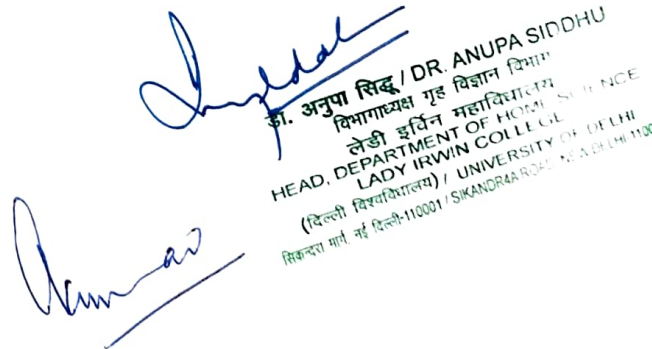 डा. अनुपा सिद्धू / DR. ANUPA SIDDHU
विभागाध्यक्ष गृह विज्ञान विभाग
लेडी इर्विन महाविद्यालय
HEAD, DEPARTMENT OF HOME SCIENCE
LADY IRWIN COLLEGE
(दिल्ली विश्वविद्यालय) / UNIVERSITY OF DELHI
सिकन्दरा मार्ग, नई दिल्ली-110001 / SIKANDRAA ROAD, NEW DELHI-1100